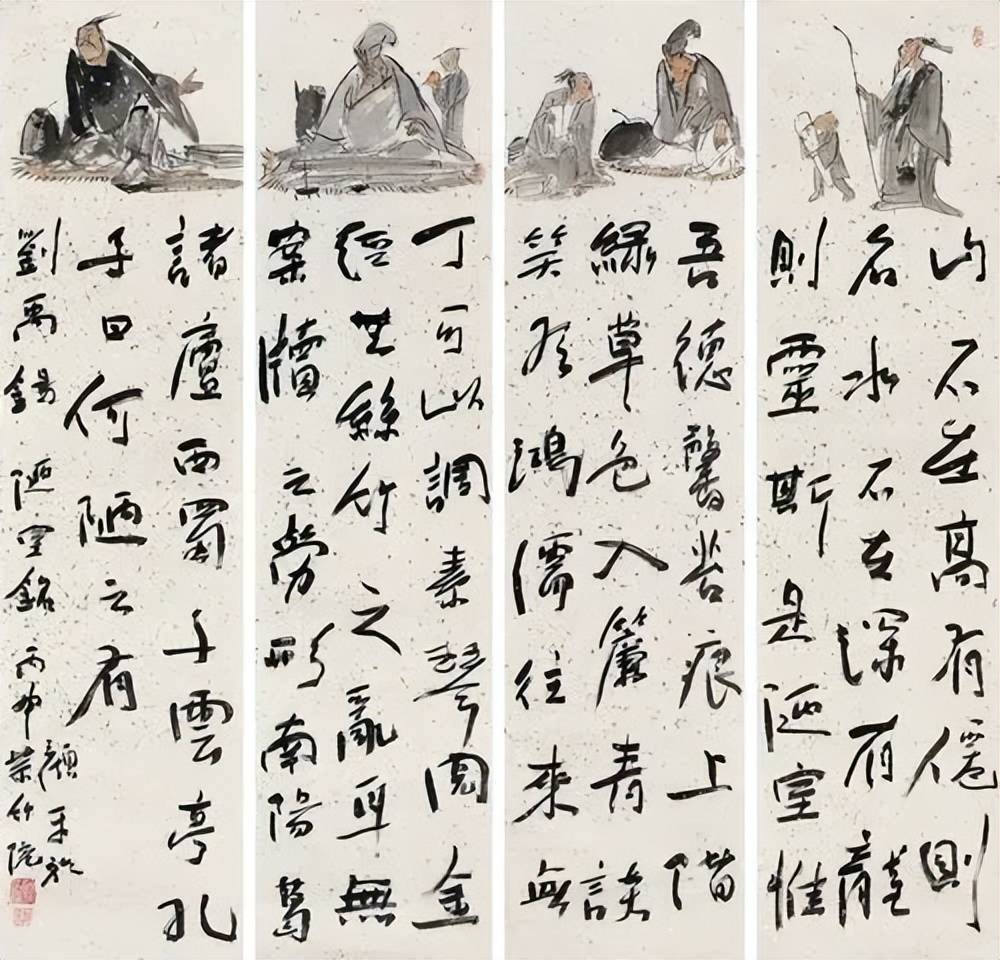 山不在高有僊則
名水不在深有龍
則靈斯是陋室惟
吾德馨苔痕上階
綠草色入簾青談
笑有鴻儒往來無
丁可以調素琴閱金
經無絲竹之亂耳無
案牘之勞形南陽葛
諸廬西蜀子雲亭孔
子曰何陋之有
劉禹錫陋室銘丙申
竹院